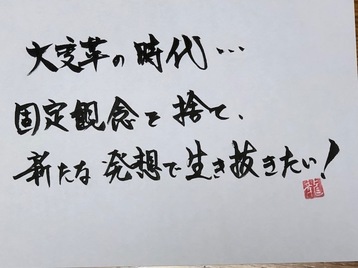 大変革の時代…
固定観念を捨て、
新たな発想で生き抜きたい!